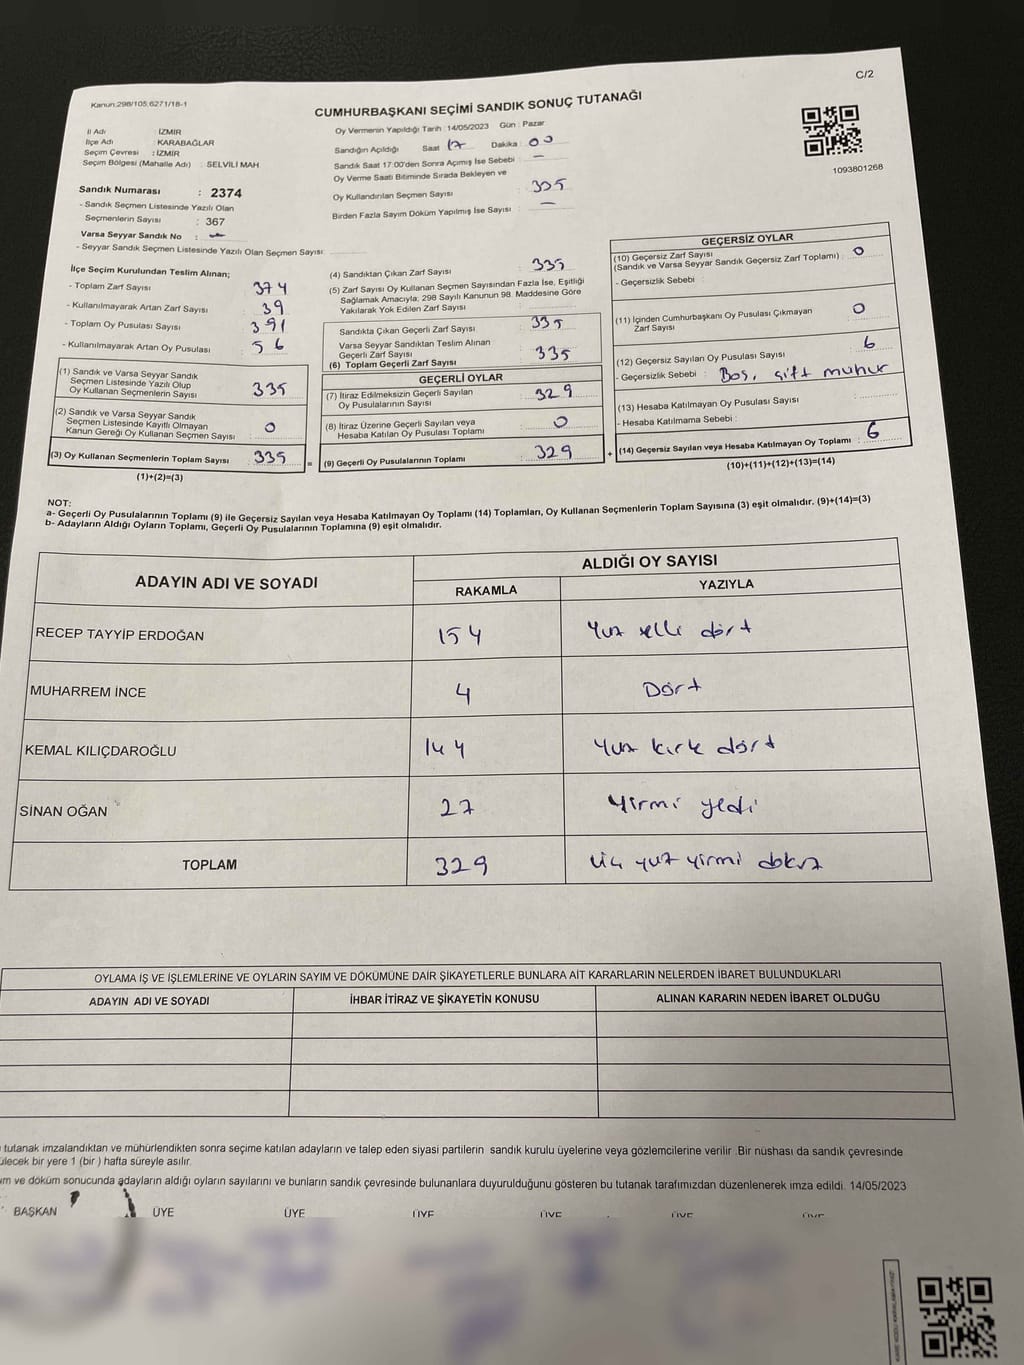 C/2
Kanun.298/105.6271/18-1
CUMHURBAŞKANI SEÇİMİ SANDIK SONUÇ TUTANAĞI
İl Adı : İZMİR
İlçe Adı : KARABAĞLAR
Seçim Çevresi : İZMİR
Seçim Bölgesi (Mahalle Adı) : SELVİLİ MAH.
Sandık Numarası : 2374
- Sandık Seçmen Listesinde Yazılı Olan
Seçmenlerin Sayısı : 367
Varsa Seyyar Sandık No : -
- Seyyar Sandık Seçmen Listesinde Yazılı Olan Seçmen Sayısı:
Oy Vermenin Yapıldığı Tarih : 14/05/2023 Gün : Pazar
Sandığın Açıldığı Saat 17 Dakika 00
Sandık Saat 17:00'den Sonra Açımış İse Sebebi : -
Oy Verme Saati Bitiminde Sırada Bekleyen ve
Oy Kullandırılan Seçmen Sayısı : 335
Birden Fazla Sayım Döküm Yapılmış İse Sayısı : -
1093801268
İlçe Seçim Kurulundan Teslim Alınan;
- Toplam Zarf Sayısı : 374
- Kullanılmayarak Artan Zarf Sayısı : 39
- Toplam Oy Pusulası Sayısı : 391
- Kullanılmayarak Artan Oy Pusulası : 56
(1) Sandık ve Varsa Seyyar Sandık
Seçmen Listesinde Yazılı Olup
Oy Kullanan Seçmenlerin Sayısı : 335
(2) Sandık ve Varsa Seyyar Sandık
Seçmen Listesinde Kayıtlı Olmayan
Kanun Gereği Oy Kullanan Seçmen Sayısı : 0
(3) Oy Kullanan Seçmenlerin Toplam Sayısı : 335
(1)+(2)=(3)
=
(4) Sandıktan Çıkan Zarf Sayısı : 335
(5) Zarf Sayısı Oy Kullanan Seçmen Sayısından Fazla İse, Eşitliği
Sağlamak Amacıyla; 298 Sayılı Kanunun 98. Maddesine Göre
Yakılarak Yok Edilen Zarf Sayısı
Sandıkta Çıkan Geçerli Zarf Sayısı : 335
Varsa Seyyar Sandıktan Teslim Alınan
Geçerli Zarf Sayısı
(6) Toplam Geçerli Zarf Sayısı : 335
GEÇERLİ OYLAR
(7) İtiraz Edilmeksizin Geçerli Sayılan
Oy Pusulalarının Sayısı : 329
(8) İtiraz Üzerine Geçerli Sayılan veya
Hesaba Katılan Oy Pusulası Toplamı : 0
(9) Geçerli Oy Pusulalarının Toplamı : 329
+
GEÇERSİZ OYLAR
(10) Geçersiz Zarf Sayısı
(Sandık ve Varsa Seyyar Sandık Geçersiz Zarf Toplamı) : 0
- Geçersizlik Sebebi :
(11) İçinden Cumhurbaşkanı Oy Pusulası Çıkmayan
Zarf Sayısı : 0
(12) Geçersiz Sayılan Oy Pusulası Sayısı : 6
- Geçersizlik Sebebi : Boş, çift mühür
(13) Hesaba Katılmayan Oy Pusulası Sayısı :
- Hesaba Katılmama Sebebi :
(14) Geçersiz Sayılan veya Hesaba Katılmayan Oy Toplamı : 6
(10)+(11)+(12)+(13)=(14)
NOT:
a- Geçerli Oy Pusulalarının Toplamı (9) ile Geçersiz Sayılan veya Hesaba Katılmayan Oy Toplamı (14) Toplamları, Oy Kullanan Seçmenlerin Toplam Sayısına (3) eşit olmalıdır. (9)+(14)=(3)
b- Adayların Aldığı Oyların Toplamı, Geçerli Oy Pusulalarının Toplamına (9) eşit olmalıdır.
ADAYIN ADI VE SOYADI ALDIĞI OY SAYISI
RAKAMLA YAZIYLA
RECEP TAYYİP ERDOĞAN 154 Yüz elli dört
MUHARREM İNCE 4 Dört
KEMAL KILIÇDAROĞLU 144 Yüz kırk dört
SİNAN OĞAN 27 Yirmi yedi
TOPLAM 329 Üç yüz yirmi dokuz
OYLAMA İŞ VE İŞLEMLERİNE VE OYLARIN SAYIM VE DÖKÜMÜNE DAİR ŞİKAYETLERLE BUNLARA AİT KARARLARIN NELERDEN İBARET BULUNDUKLARI
ADAYIN ADI VE SOYADI İHBAR İTİRAZ VE ŞİKAYETİN KONUSU ALINAN KARARIN NEDEN İBARET OLDUĞU
tutanak imzalandıktan ve mühürlendikten sonra seçime katılan adayların ve talep eden siyasi partilerin sandık kurulu üyelerine veya gözlemcilerine verilir .Bir nüshası da sandık çevresinde
ülecek bir yere 1 (bir ) hafta süreyle asılır.
ım ve döküm sonucunda adayların aldığı oyların sayılarını ve bunların sandık çevresinde bulunanlara duyurulduğunu gösteren bu tutanak tarafımızdan düzenlenerek imza edildi. 14/05/2023
BAŞKAN ÜYE ÜYE ÜYE ÜYE ÜYE ÜYE